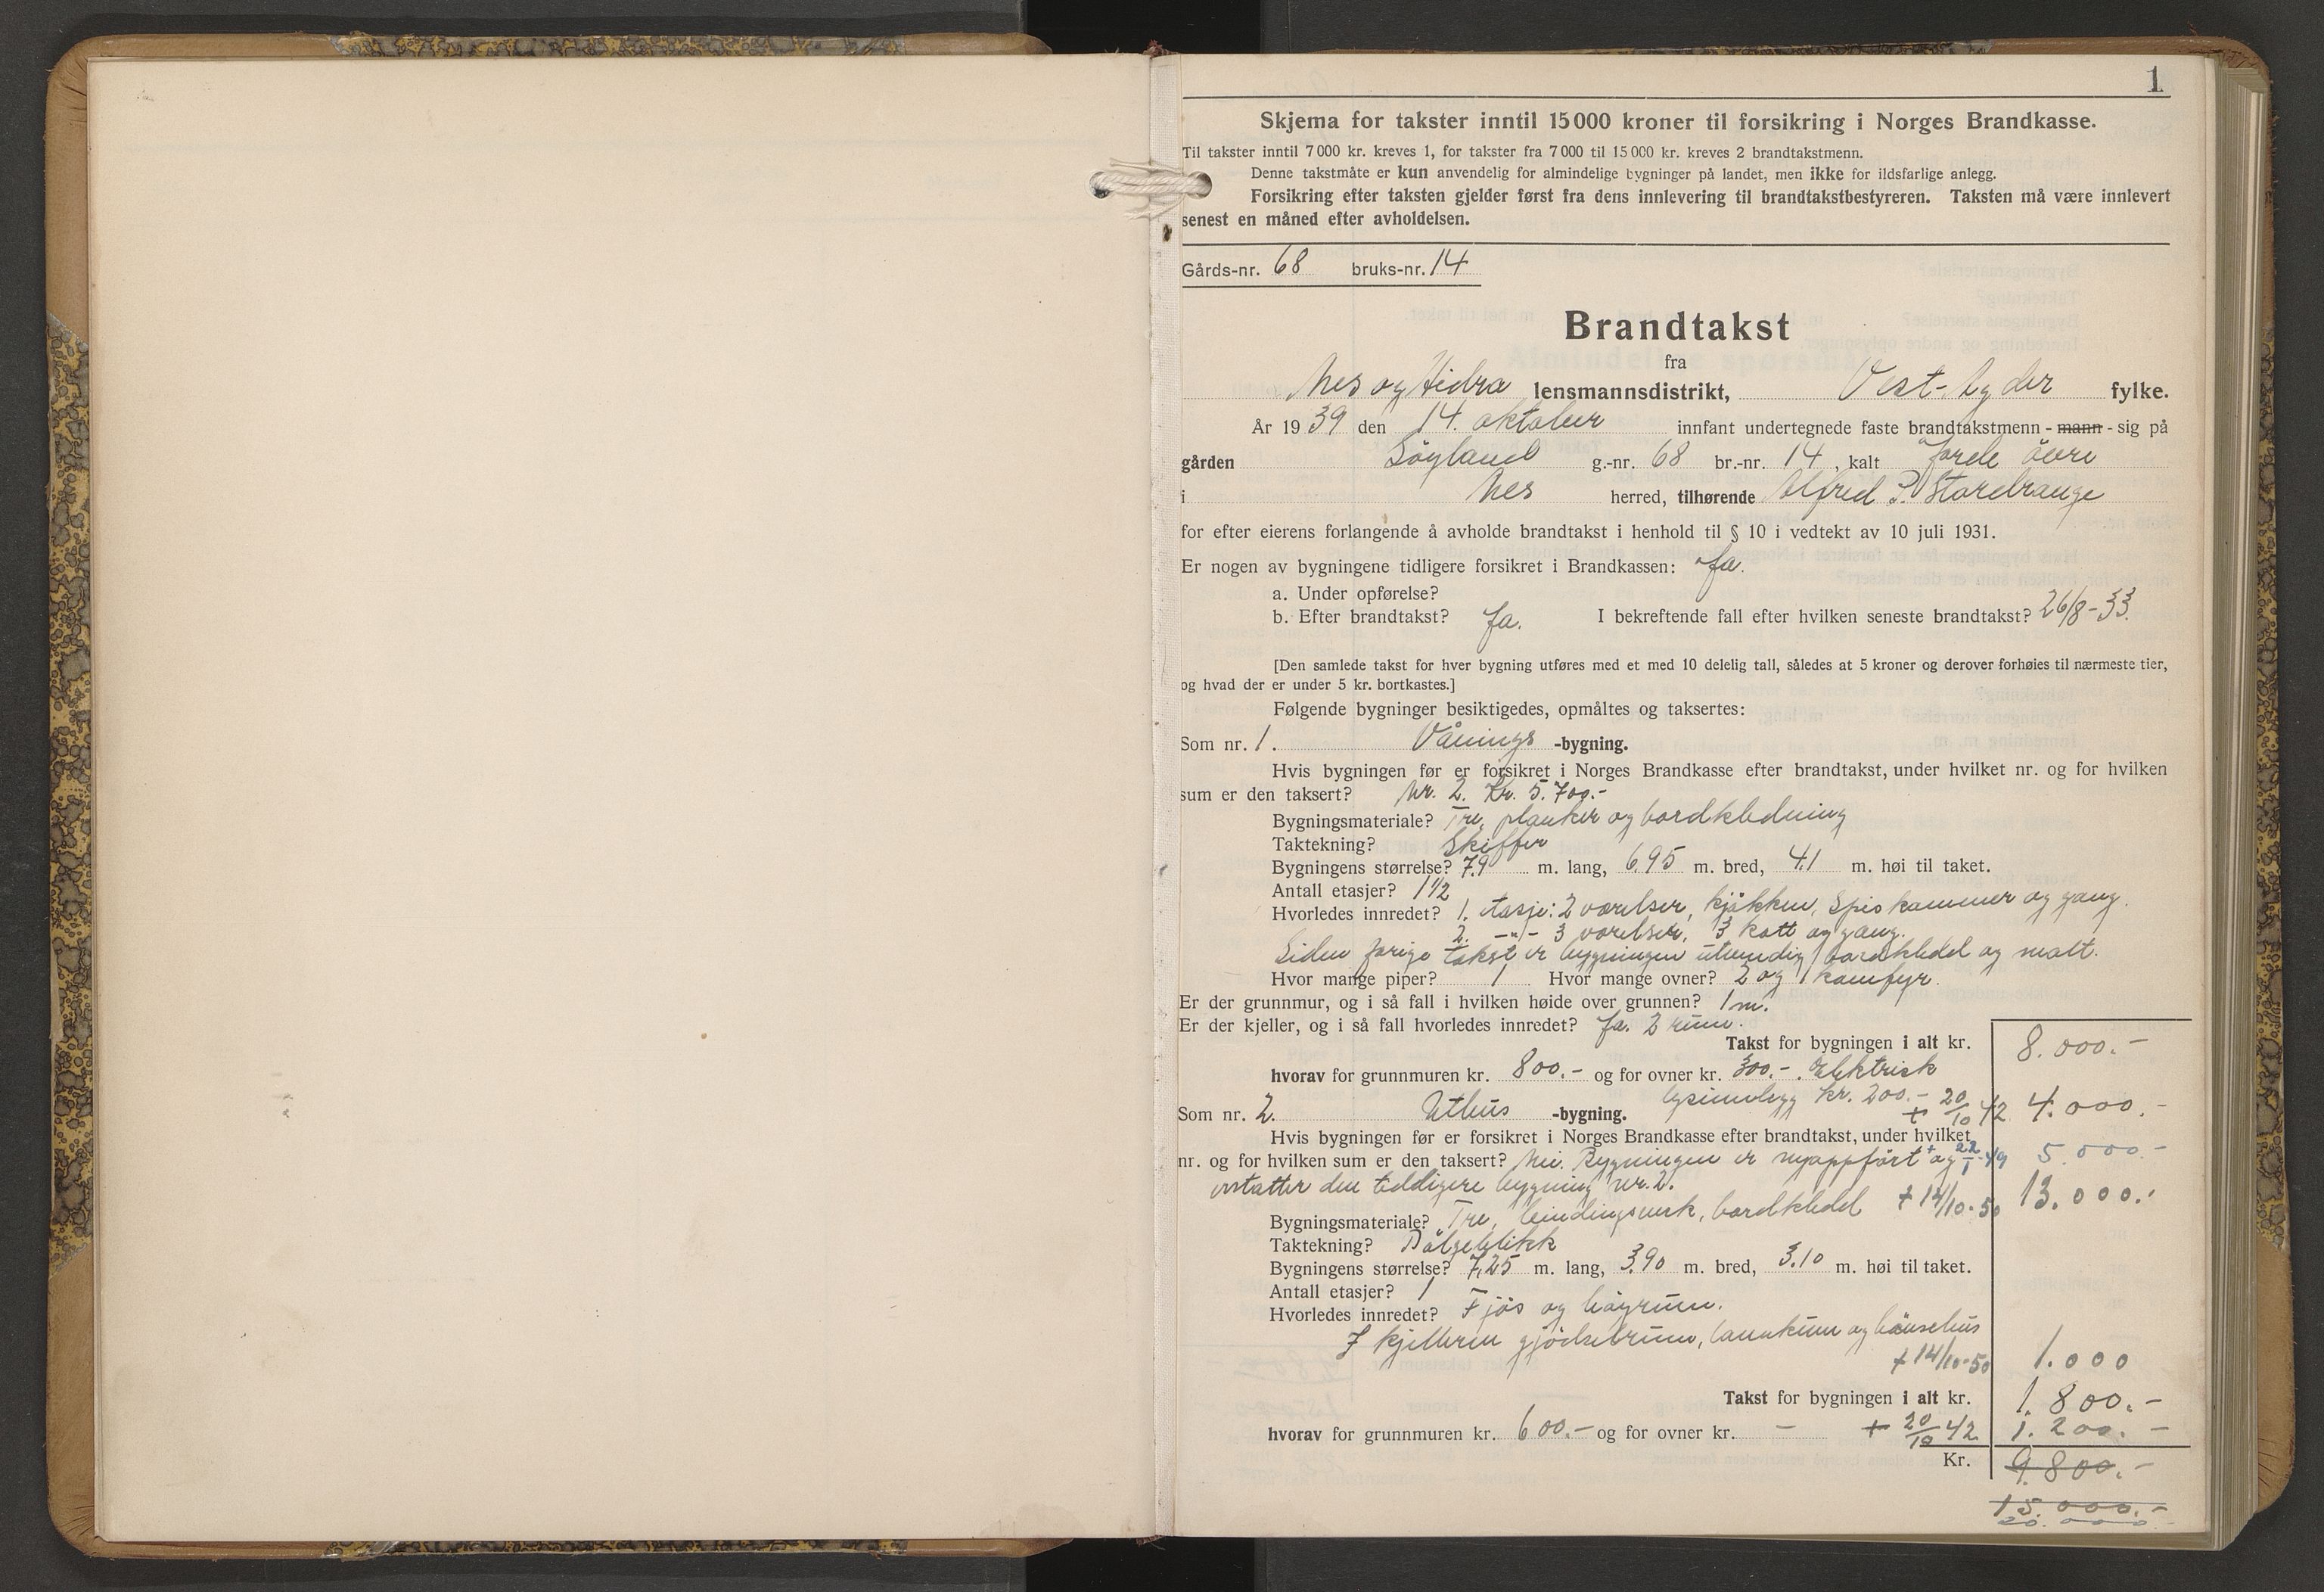 1
Skjema for takster inntil 15 000 kroner til forsikring i Norges Brandkasse.
Til takster inntil 7 000 kr. kreves 1, for takster fra 7 000 til 15 000 kr. kreves 2 brandtakstmenn.
Denne takstmåte er kun anvendelig for almindelige bygninger på landet, men ikke for ildsfarlige anlegg.
Forsikring efter taksten gjelder først fra dens innlevering til brandtakstbestyreren. Taksten må være innlevert
senest en måned efter avholdelsen.
Gårds-nr. 68 bruks-nr. 14
Brandtakst
fra
Nes og Hidra lensmannsdistrikt, Vest-Agder fylke.
År 1939 den 14. oktober innfant undertegnede faste brandtakstmenn - mann - sig på
gården Söyland g.-nr. 68 br.-nr. 14, kalt Jorde övre
i Nes herred, tilhørende Alfred P. Stordrange
for efter eierens forlangende å avholde brandtakst i henhold til § 10 i vedtekt av 10 juli 1931.
Er nogen av bygningene tidligere forsikret i Brandkassen: Ja.
a. Under opførelse?
b. Efter brandtakst? Ja. I bekreftende fall efter hvilken seneste brandtakst? 26/8-33.
[Den samlede takst for hver bygning utføres med et med 10 delelig tall, således at 5 kroner og derover forhøies til nærmeste tier,
og hvad der er under 5 kr. bortkastes.]
Følgende bygninger besiktigedes, opmåltes og taksertes:
Som nr. 1. Vånings -bygning.
Hvis bygningen før er forsikret i Norges Brandkasse efter brandtakst, under hvilket nr. og for hvilken
sum er den taksert? Nr. 2. Kr. 5.700.-
Bygningsmateriale? Tre, planker og bordkledning
Taktekning? Skiffer
Bygningens størrelse? 7.9 m. lang, 6.95 m. bred, 4.1 m. høi til taket.
Antall etasjer? 1 1/2
Hvorledes innredet? 1. etasje: 2 værelser, kjökken, spiskammer og gang.
2. -"- 3 værelser, 3 kott og gang.
Siden forige takst er bygningen utvendig bordkledd og malt.
Hvor mange piper? 1 Hvor mange ovner? 2 og 1 komfyr.
Er der grunnmur, og i så fall i hvilken høide over grunnen? 1 m.
Er der kjeller, og i så fall hvorledes innredet? Ja. 2 rum.
Takst for bygningen i alt kr. 8.000.-
hvorav for grunnmuren kr. 800.- og for ovner kr. 300.-. Elektrisk
lysinnlegg kr. 200.-
Som nr. 2. Uthus -bygning. + 20/10 42 4.000.-
Hvis bygningen før er forsikret i Norges Brandkasse efter brandtakst, under hvilket
nr. og for hvilken sum er den taksert? Nei. Bygningen er nyoppfört og + 22/1-49 5.000.-
erstatter den tiddigere bygning nr. 2.
+ 14/10-50 13.000.-
Bygningsmateriale? Tre, bindingsverk, bordkledd
Taktekning? Bölgeblikk
Bygningens størrelse? 7,25 m. lang, 3.90 m. bred, 3.10 m. høi til taket.
Antall etasjer? 1
Hvorledes innredet? Fjös og höyrum.
I kjelleren gjödselrum, landkum og hönsehus
+ 14/10-50 1.000
Takst for bygningen i alt kr. 1.800.-
hvorav for grunnmuren kr. 600.- og for ovner kr. - + 20/10 42 1.200.-
Kr. 9.800.-
15.000.-
20.000.-